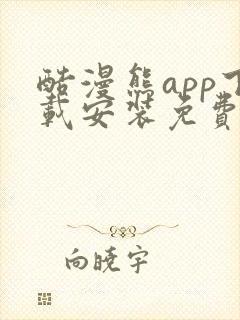 酷漫熊app下
载安装免費
向晓宇